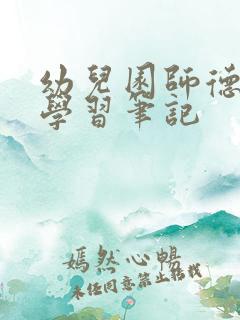 幼兒園師德
學習筆記
嫣然心暢
未经同意禁止转载